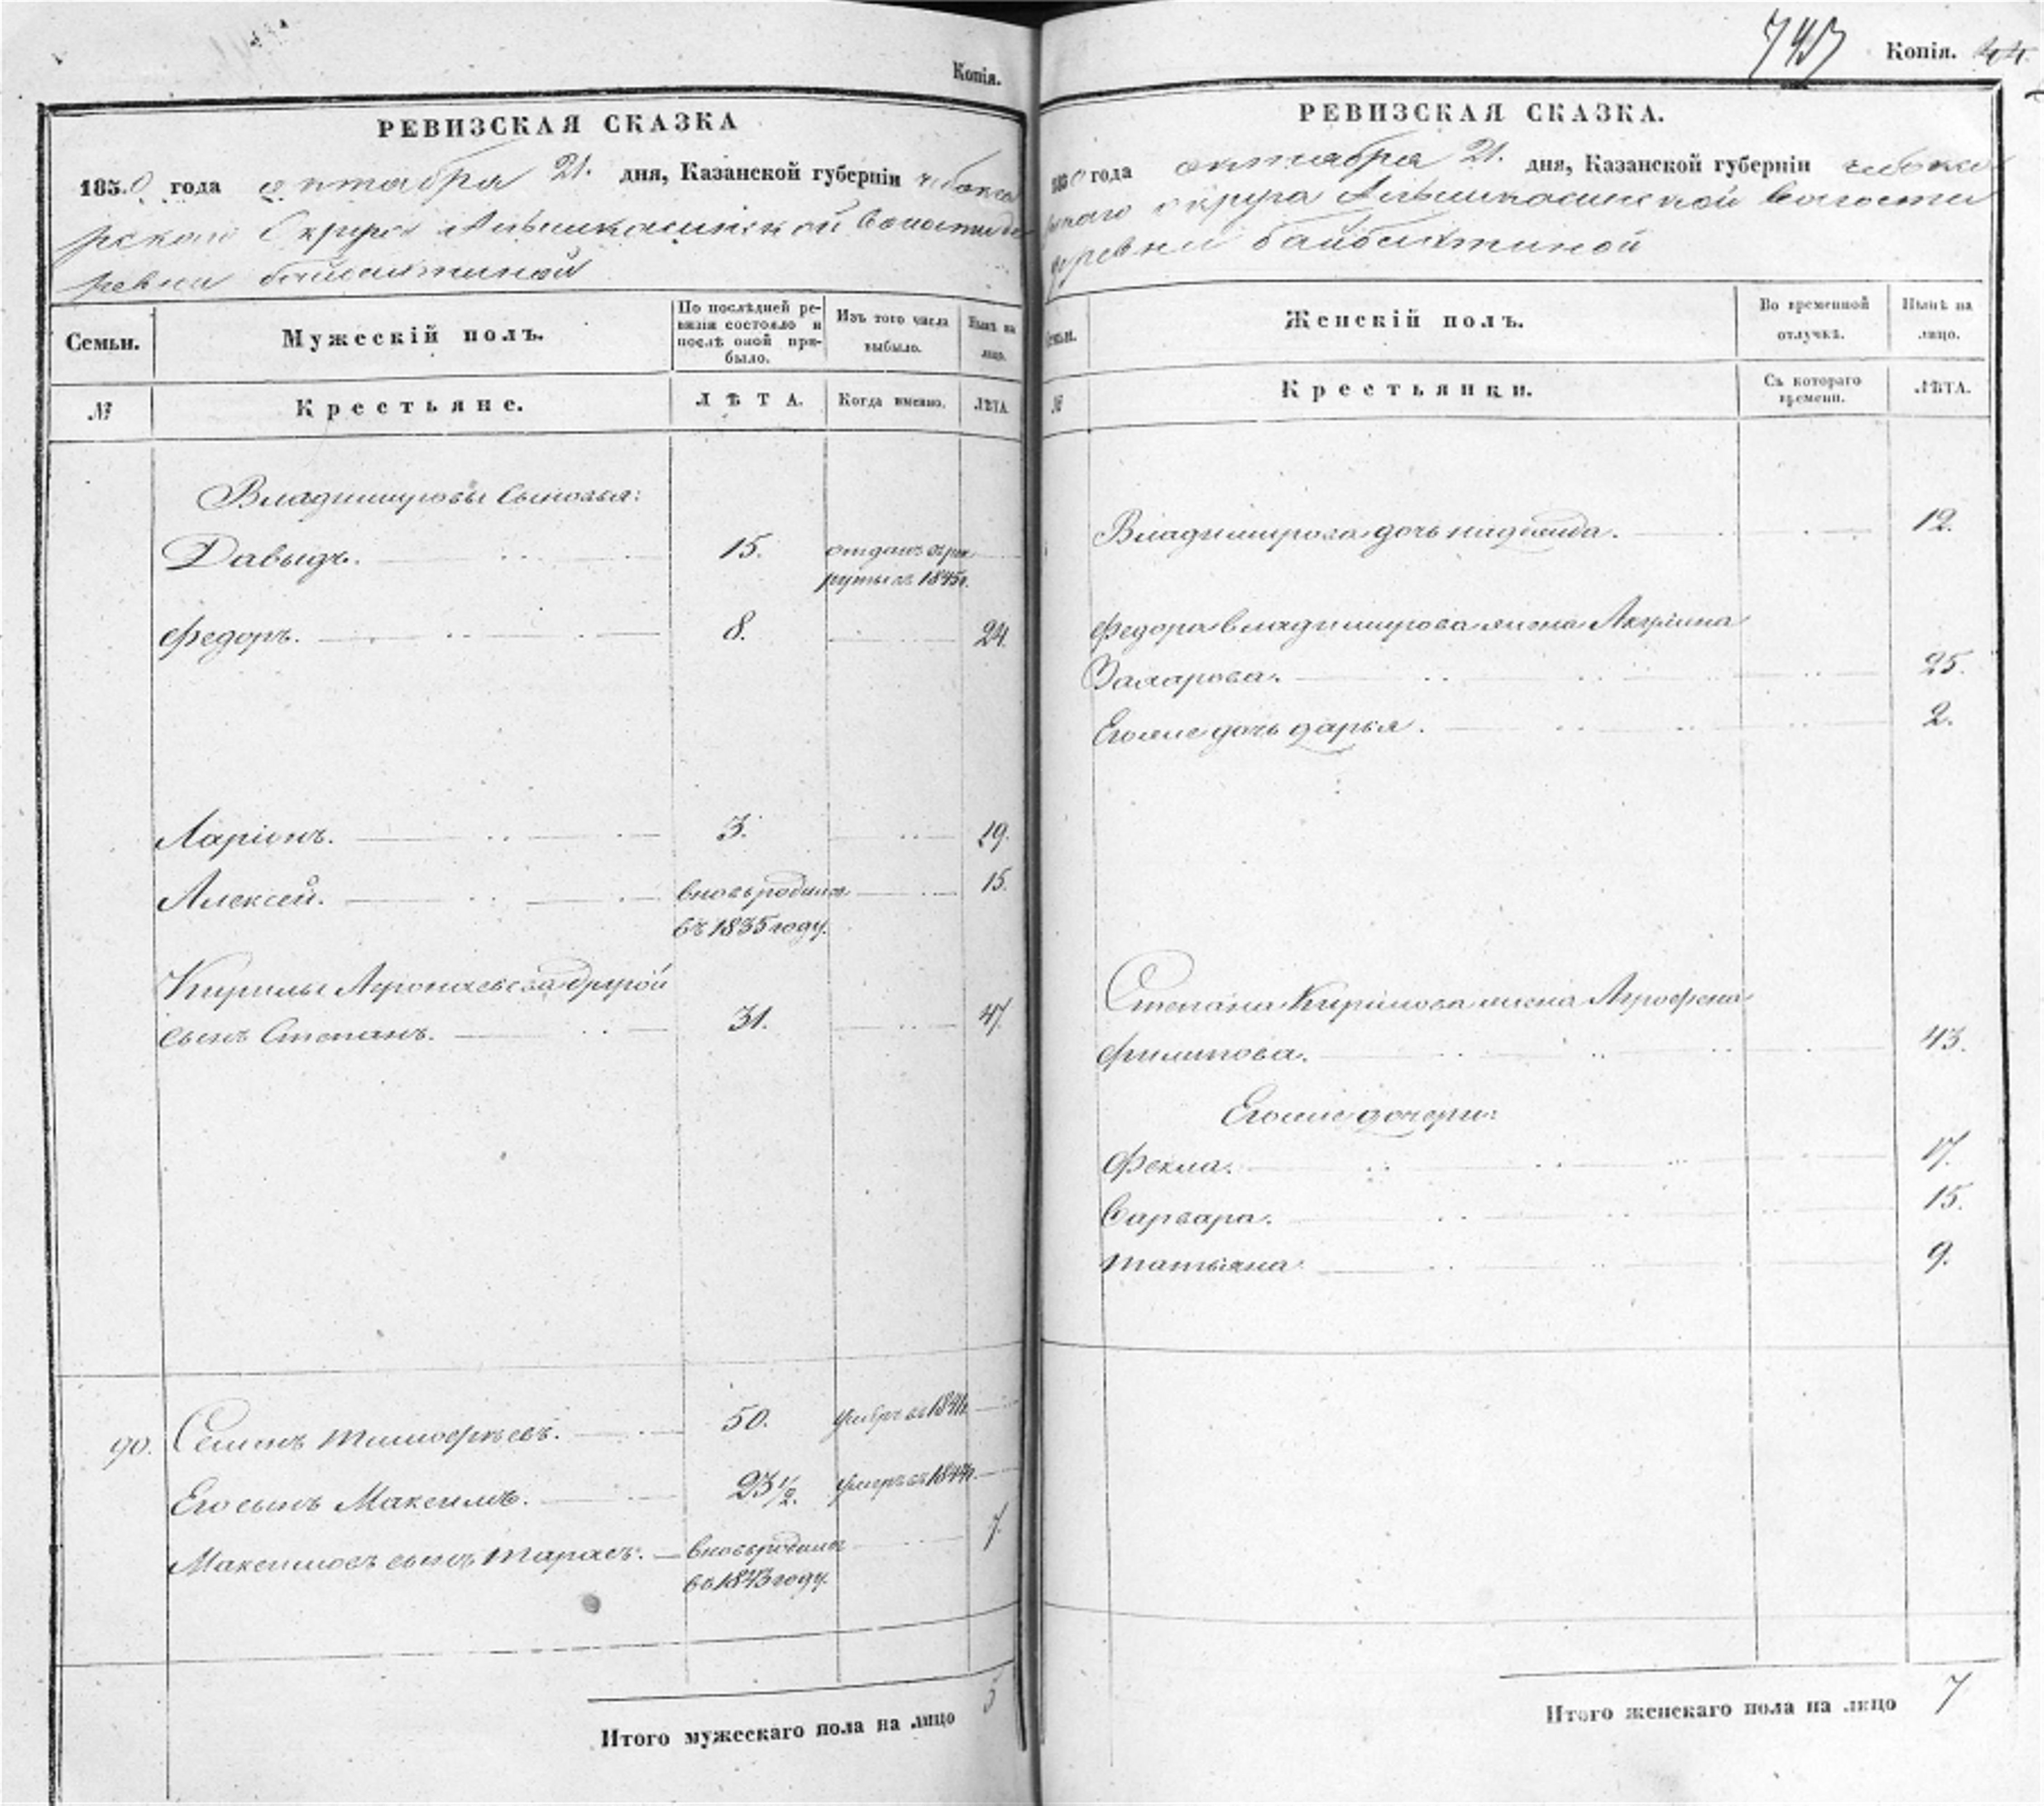 Копія.
РЕВИЗСКАЯ СКАЗКА
1850 года октября 21. дня, Казанской губерніи чебокса
рскаго Округа Альшикасинской волости де
ревни байбахтиной
Семьи.
Мужескій полъ.
По послѣдней ре-
визіи состояло и
послѣ оной при-
было.
Изъ того числа
выбыло.
Нынѣ на
лицо.
№
Крестьяне.
ЛѢТА.
Когда именно.
ЛѢТА.
Владимировы сыновья:
Давыдъ. 15. отданъ в рек
руты въ 1845г.
Федоръ. 8. 24.
Ларіонъ. 3. 19.
Алексей. вновь родился 15.
въ 1835 году.
Кирилы другой
сынъ Степанъ. 31. 47
90. Семенъ Тимофеевъ. 50. умеръ въ
Его сынъ Максимъ. 23 1/2. умеръ въ
Максимовъ сынъ Тарасъ. вновь родился 7
въ 1843 году.
Итого мужескаго пола на лицо 5
Копія. 44
РЕВИЗСКАЯ СКАЗКА.
1850 года октября 21. дня, Казанской губерніи чебокса
рскаго округа Альшикасинской волости
деревни байбахтиной
Семьи.
Женскій полъ.
Во временной
отлучкѣ.
Нынѣ на
лицо.
№
Крестьянки.
Съ котораго
времени.
ЛѢТА.
Владимирова дочь надежда. 12.
Федора владимирова жена Акулина
Захарова. 25.
Его же дочь дарья. 2.
Степана Кирилова жена Агрофена
филипова. 43.
Его же дочери:
Фекла. 17.
Варвара. 15.
татьяна 9.
Итого женскаго пола на лицо 7